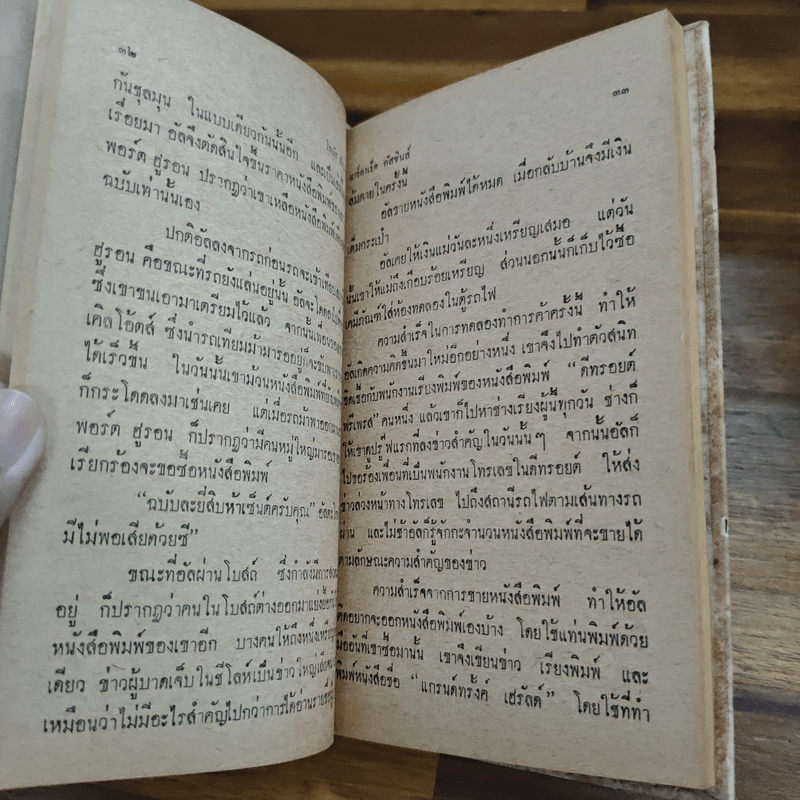 ๓๒
กันชุลมุน ในแบบเดียวกันนั้นอีก และเป็น
เรื่อยมา อัลจึงตัดสินใจขึ้นราคาหนังสือพิมพ์
พอร์ต ฮูรอน ปรากฏว่าเขาเหลือหนังสือพิมพ์
ฉบับเท่านั้นเอง
ปกติอัลลงจากรถก่อนรถจะเข้าเทียบ
ฮูรอน คือขณะที่รถยังแล่นอยู่นั้น อัลจะโดด
ซึ่งเขาขนเอามาเตรียมไว้แล้ว จากนั้นเพื่อน
เคิลโอ้ตส์ ซึ่งนำรถเทียมม้ามารออยู่ก็จะขับพา
ได้เร็วขึ้น ในวันนั้นเขาม้วนหนังสือพิมพ์ที่ยัง
ก็กระโดดลงมาเช่นเคย แต่เมื่อรถม้าพาออก
พอร์ต ฮูรอน ก็ปรากฏว่ามีคนหมู่ใหญ่มารอ
เรียกร้องจะขอซื้อหนังสือพิมพ์
“ฉบับละยี่สิบห้าเซ็นต์ครับคุณ” อัล
มีไม่พอเสียด้วยซี”
ขณะที่อัลผ่านโบสถ์ ซึ่งกำลังมีการ
อยู่ ก็ปรากฏว่าคนในโบสถ์ต่างออกมาแย่งซื้อ
หนังสือพิมพ์ของเขาอีก บางคนให้ถึงหนึ่งเหรียญ
เดียว ข่าวผู้บาดเจ็บในชีโลห์เป็นข่าวใหญ่
เหมือนว่าไม่มีอะไรสำคัญไปกว่าการได้อ่านราย
๓๓
มาร์กาเร็ต คัสซินส์
ล้มตายในครั้งนี้
อัลขายหนังสือพิมพ์ได้หมด เมื่อกลับบ้านจึงมีเงิน
เต็มกระเป๋า
อัลเคยให้เงินแม่วันละหนึ่งเหรียญเสมอ แต่วัน
นั้นเขาให้แม่ถึงเกือบร้อยเหรียญ ส่วนนอกนั้นก็เก็บไว้ซื้อ
เคมีภัณฑ์ใส่ห้องทดลองในตู้รถไฟ
ความสำเร็จในการทดลองทำการค้าครั้งนี้ ทำให้
อัลเกิดความคิดขึ้นมาใหม่อีกอย่างหนึ่ง เขาจึงไปทำตัวสนิท
ชิดเชื้อกับพนักงานเรียงพิมพ์ของหนังสือพิมพ์ “ดีทรอยต์
ฟรีเพรส” คนหนึ่ง แล้วเขาก็ไปหาช่างเรียงผู้นี้ทุกวัน ช่างก็
ให้เขาดูปรู๊ฟแรกที่ลงข่าวสำคัญในวันนั้น ๆ จากนั้นอัลก็
ไปขอร้องเพื่อนที่เป็นพนักงานโทรเลขในดีทรอยต์ ให้ส่ง
ข่าวล่วงหน้าทางโทรเลข ไปถึงสถานีรถไฟตามเส้นทางรถ
ผ่าน และไม่ช้าอัลก็รู้จักกะจำนวนหนังสือพิมพ์ที่จะขายได้
ตามลักษณะความสำคัญของข่าว
ความสำเร็จจากการขายหนังสือพิมพ์ ทำให้อัล
คิดอยากจะออกหนังสือพิมพ์เองบ้าง โดยใช้แท่นพิมพ์ด้วย
มืออันที่เขาซื้อมานั้น เขาจึงเขียนข่าว เรียงพิมพ์ และ
พิมพ์หนังสือชื่อ “แกรนด์ทรั้งค์ เฮรัลด์” โดยใช้ที่ทำ